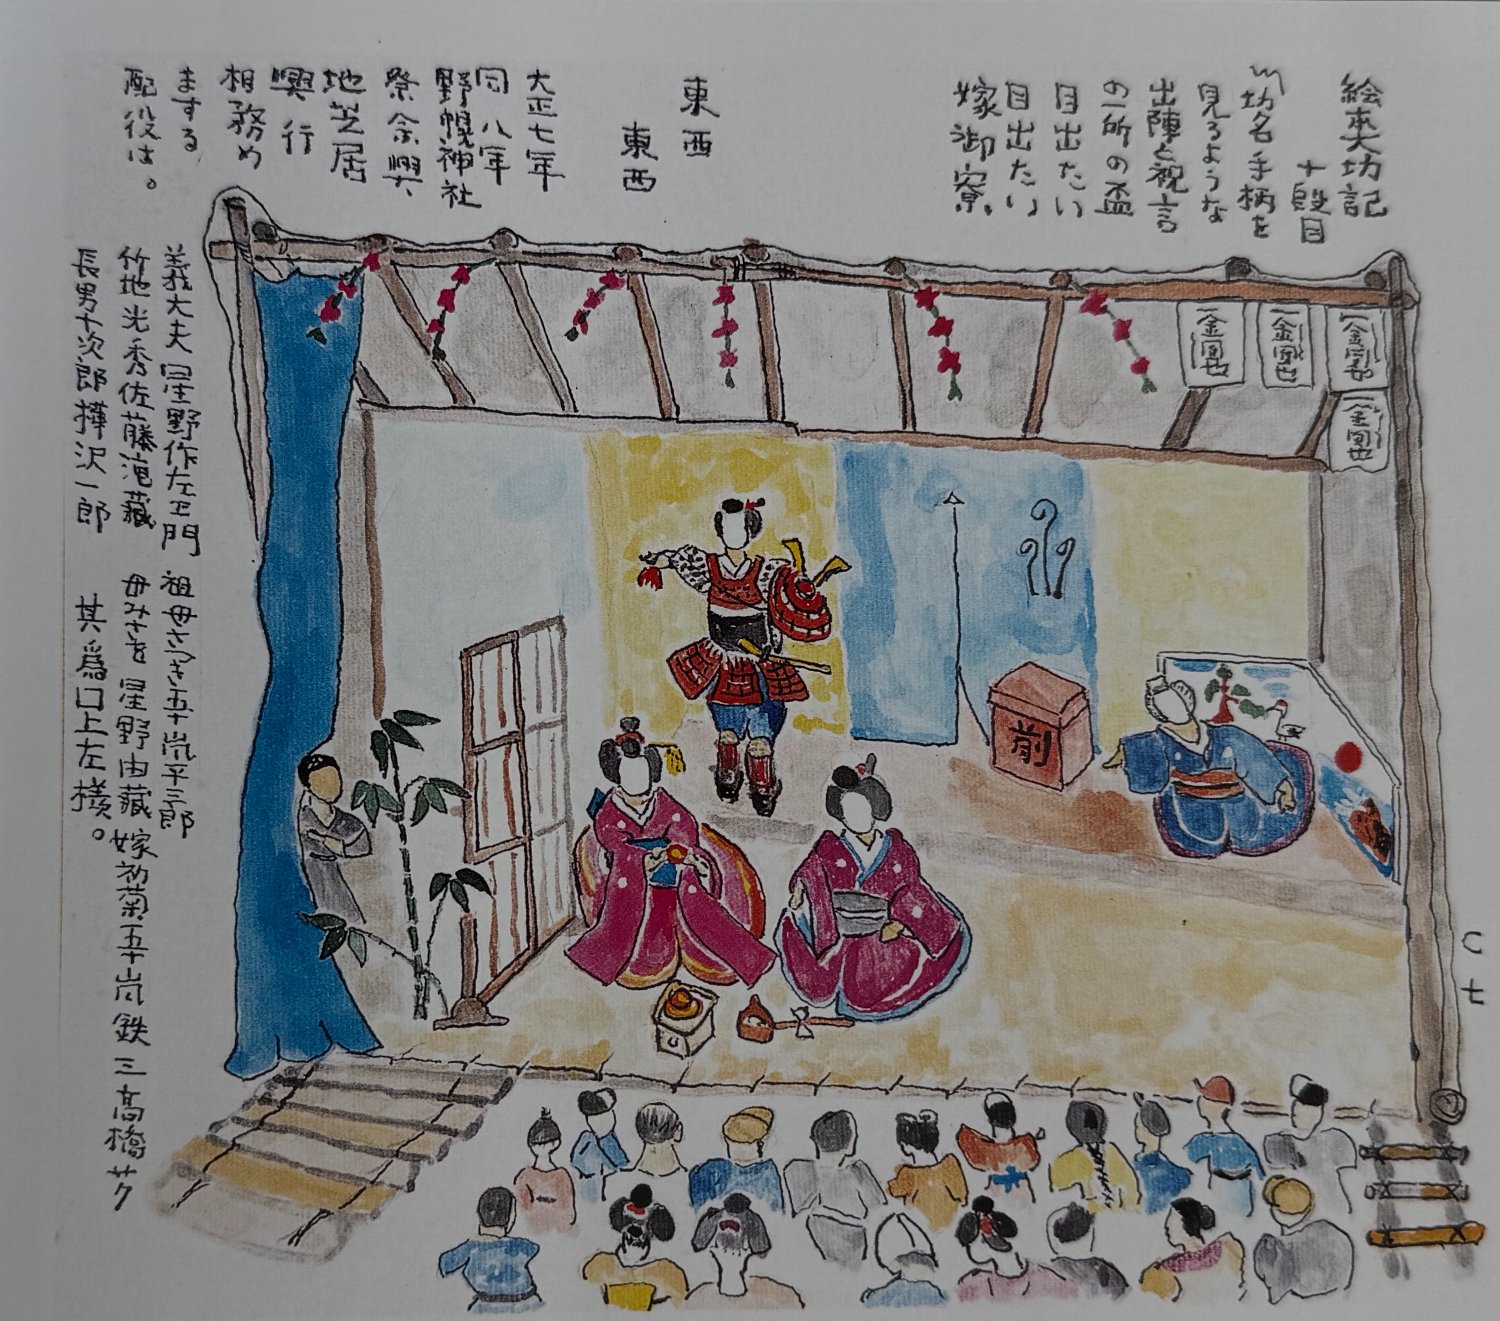 絵本大功記
十段目
〽功名手柄を
見るような
出陣と祝言
の一所の盃
目出たい
目出たい
嫁御寮、
東西
東西
大正七年
同八年
野幌神社
祭余興、
地芝居
興行
相務め
まする
配役は。
義大夫 星野作左ヱ門 祖母さつき 五十嵐平三郎
竹地光秀 佐藤滝蔵 母みさを 星野由蔵 嫁初菊 五十嵐鉄三 高橋サク
長男十次郎 樺沢一郎 其爲口上左様。
一金圓也
一金圓也
一金圓也
一金圓也
前
C七